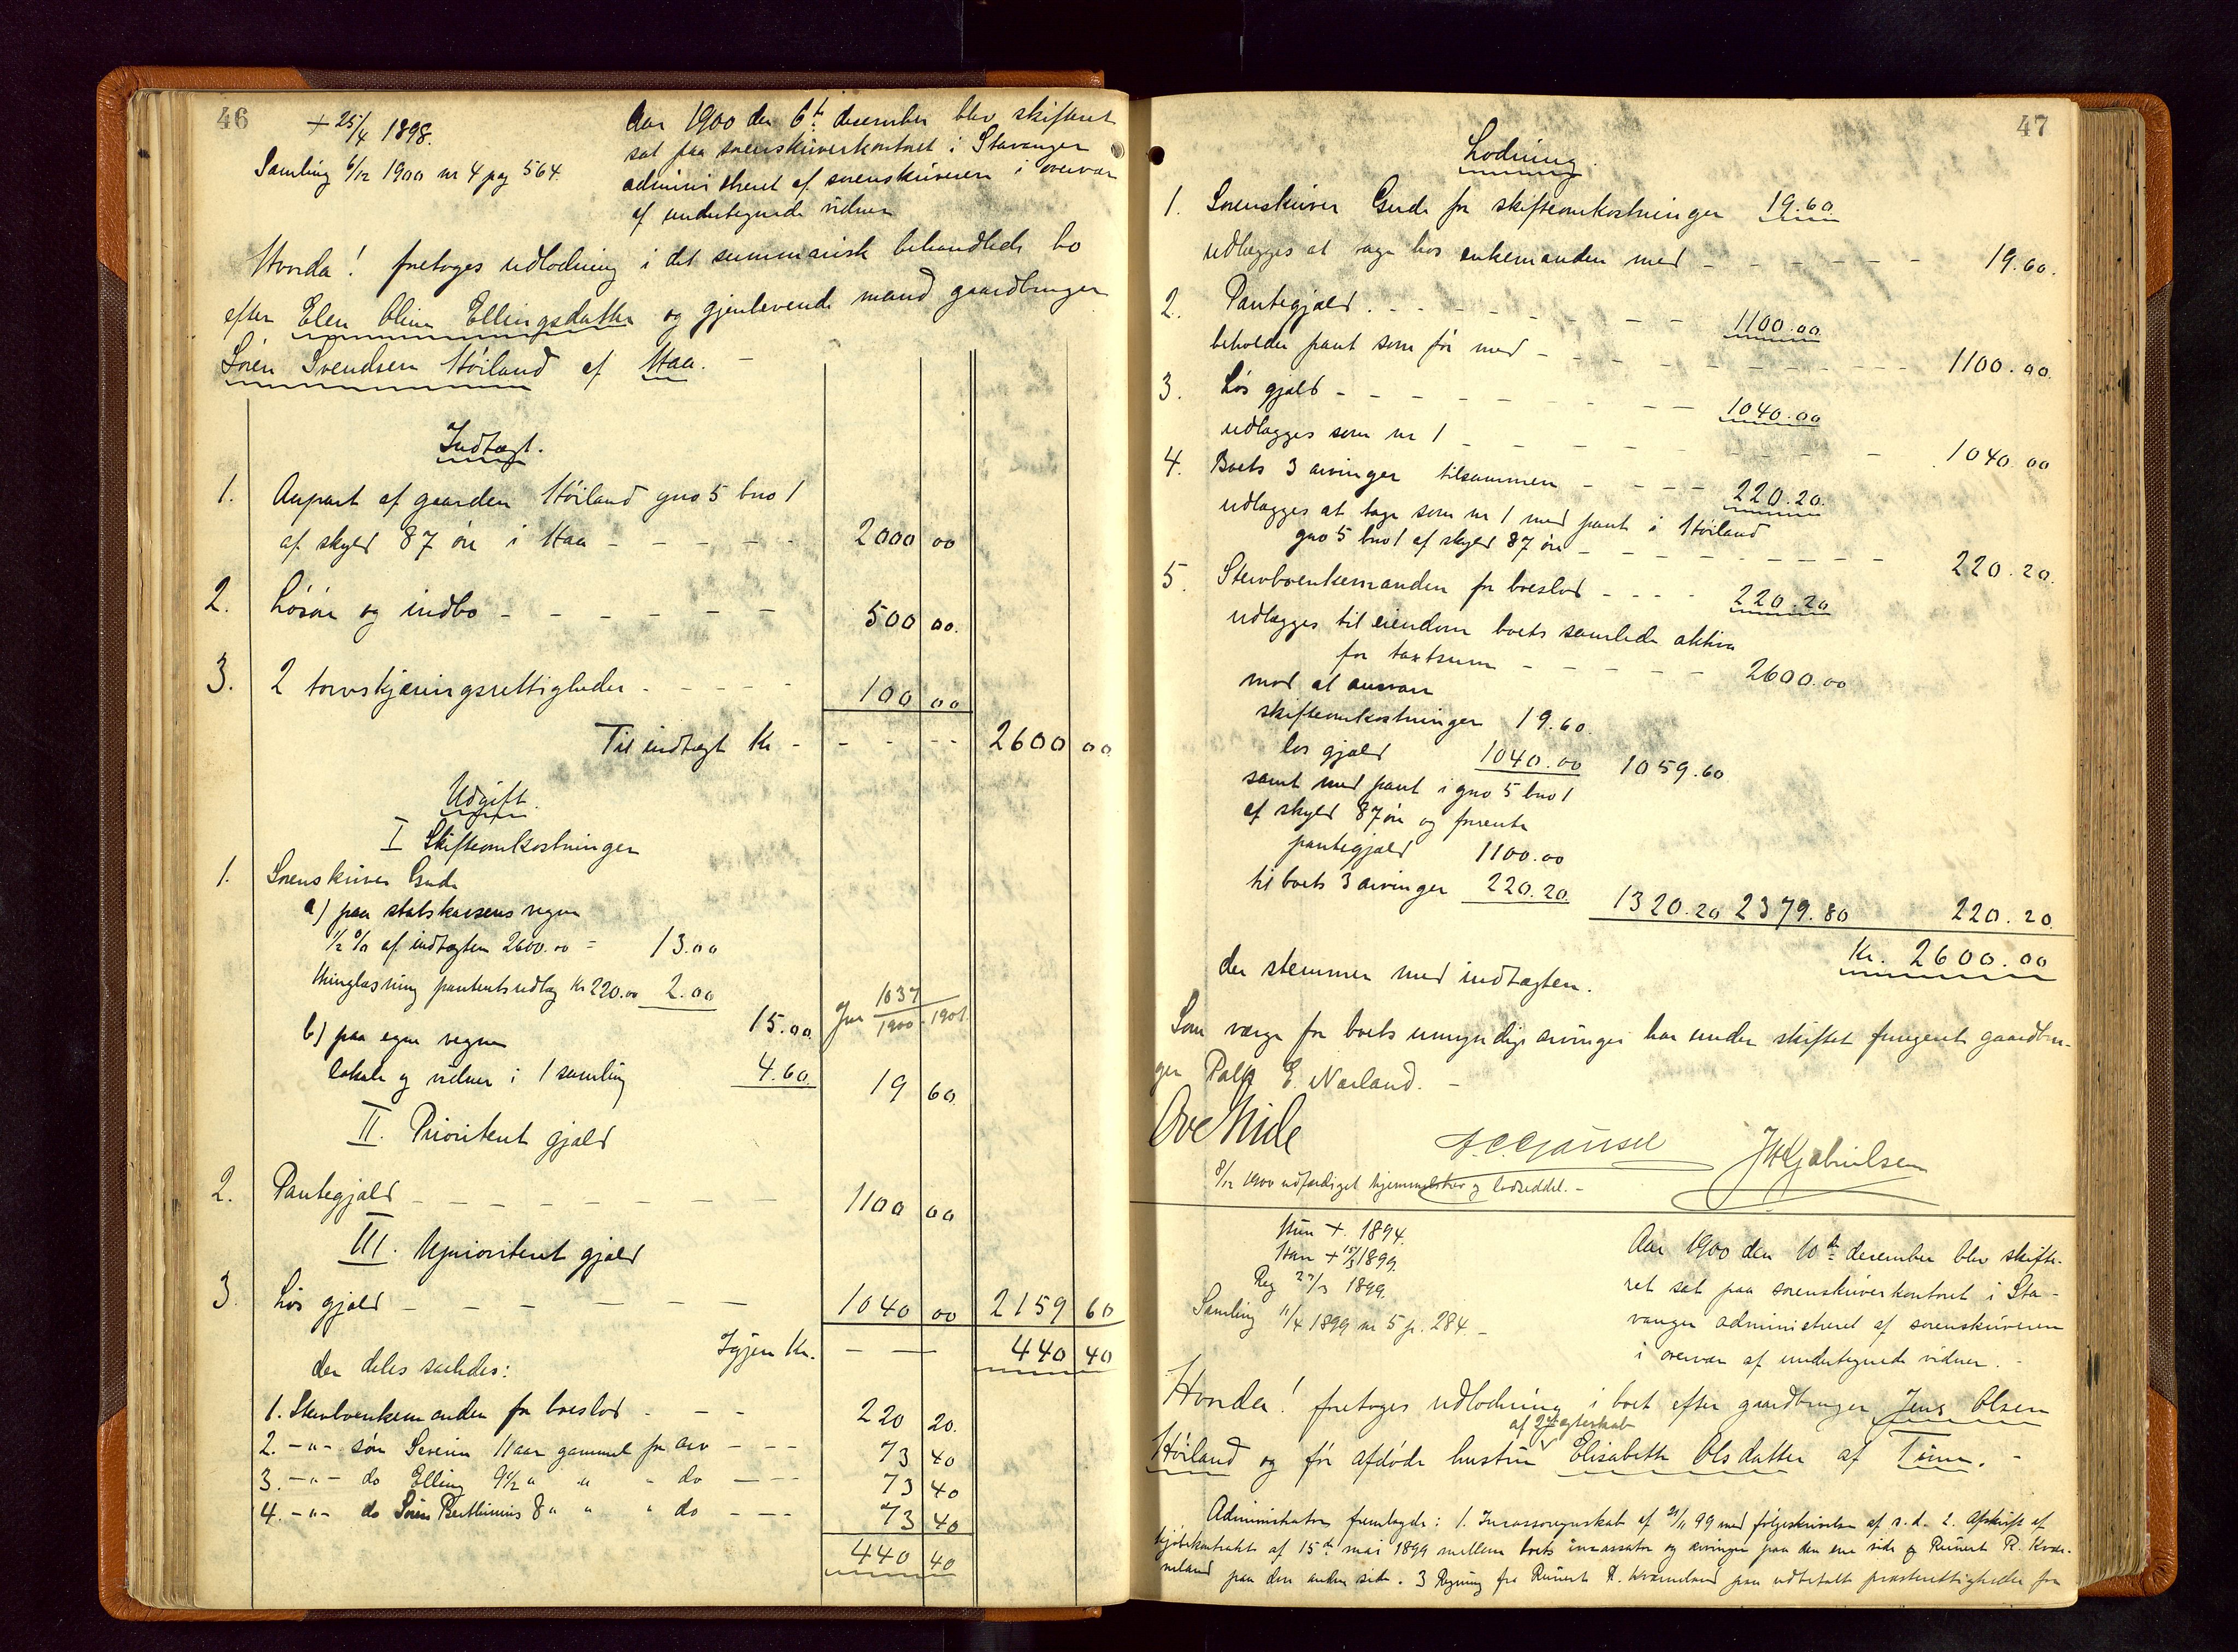 46
+ 25/4 1898.
Samling 6/12 1900 nr 4 pag 564.
Aar 1900 den 6te december blev skifteret
sat paa sorenskriverkontoret i Stavanger
administreret af sorenskriveren i overvær
af undertegnede vidner
Hvorda! foretoges udlodning i det summarisk behandlede bo
efter Elen Oline Ellingsdatter og gjenlevende mand gaardbruger
Sören Svendsen Höiland af Haa. -
Indtægt.
1. Anpart af gaarden Höiland gno 5 bno 1
af skyld 87 öre i Haa - - - - - 2000 00
2. Lösöre og indbo - - - - - - 500 00.
3. 2 torvskjæringsrettigheder - - - - 100 00
Til indtægt Kr - - - - - 2600 00
Udgift.
I Skifteomkostninger
1. Sorenskriver Gude
a) paa statskassens vegne
1/2 % af indtægten 2600.00 = 13.00
Thinglæsning panteutslæg Kr 220.00 2.00
15.00 Jnr 1037/1900-1901.
b) paa egne vegne
lokale og vidner i 1 samling 4.60. 19 60.
II. Prioriteret gjæld
2. Pantegjæld - - - - - - 1100 00
III. Uprioriteret gjæld
3. Lös gjæld - - - - - - 1040 00 2159 60
Igjen Kr. - - 440 40
der deles saaledes:
1. Stervboenkemanden for boeslod - - - 220 20.
2. -"- sön Severin 11 aar gammel for arv - - - 73 40
3. -"- do Elling 9 1/2 " " " do - - - 73 40
4. -"- do Sören Bertinius 8 " " " do - - - 73 40
440 40
47
Lodning.
1. Sorenskriver Gude for skifteomkostninger 19.60.
udlægges at tage hos enkemanden med - - - - - - 19.60.
2. Pantegjæld. - - - - - - - 1100.00
beholder pant som för med - - - - - - - - - 1100.00.
3. Lös gjæld - - - - - - - - - 1040.00
udlægges som nr 1 - - - - - - - - 1040.00
4. Boets 3 arvinger tilsammen - - - - 220.20.
udlægges at tage som nr 1 med pant i Höiland
gno 5 bno 1 af skyld 87 öre - - - - - - - - 220.20.
5. Stervboenkemanden for boeslod - - - - 220.20
udlægges til eiendom boets samlede aktiva
for taxtsum - - - - - - 2600.00
mod at ansvare
skifteomkostninger 19.60.
lös gjæld 1040.00 1059.60
samt med pant i gno 5 bno 1
af skyld 87 öre og forrente
pantegjæld 1100.00
til boets 3 arvinger 220.20. 1320.20 2379.80 220.20
Kr. 2600.00
der stemmer med indtægten.
Som værge for boets umyndige arvinger har under skiftet fungeret gaardbru-
ger Palle E. Nærland. -
Ove Gude
J. C. Gausel
J H Gabrielsen
8/12 1900 udfærdiget hjemmelsbrev og lodseddel. -
Hun + 1894.
Han + 15/3 1899.
Reg 27/3 1899.
Samling 11/4 1899 nr 5 p. 284. -
Aar 1900 den 10de december blev skifte-
ret sat paa sorenskriverkontoret i Sta-
vanger administreret af sorenskriveren
i overvær af undertegnede vidner. -
Hvorda! foretoges udlodning i boet efter gaardbruger Jens Olsen
af 2det egteskab
Höiland og för afdöde hustru Elisabeth Olsdatter af Time. -
Administrator fremlagde: 1. Incassoregnskab af 21/11 99 med fölgeskrivelse af s. d. 2. Afskrift af
kjöbekontrakt af 15de mai 1899 mellem boets incassator og arvinger paa den ene side og Reinert R. Kvær-
neland paa den anden side. 3 Regning fra Reinert R. Kværneland paa udbetalt præsterettigheder fra